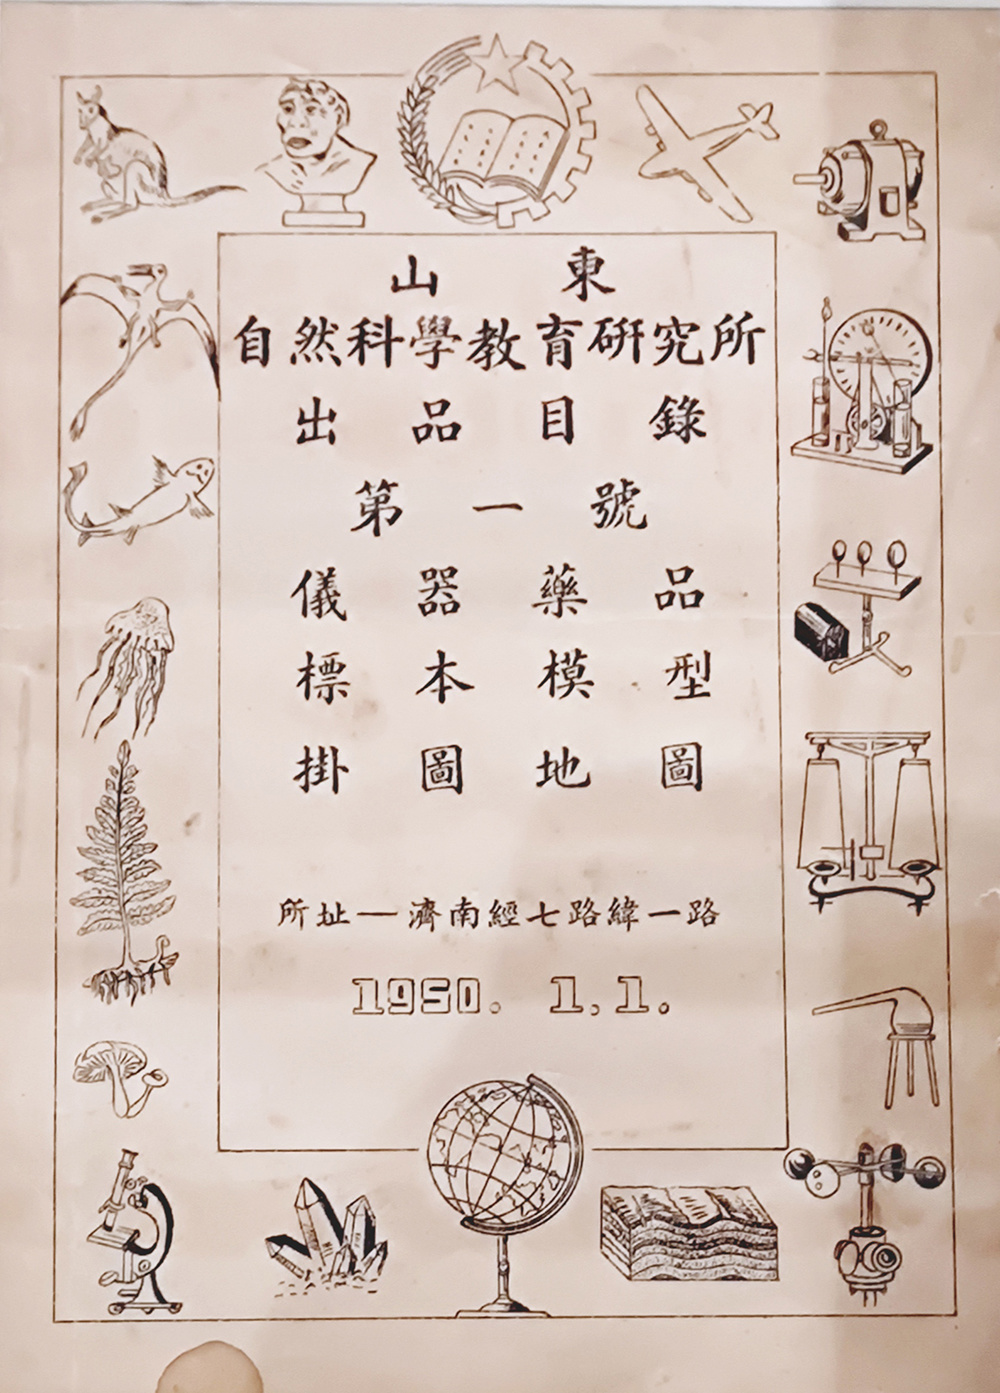 山東
自然科學教育研究所
出品目錄
第一號
儀器藥品
標本模型
掛圖地圖
所址—濟南經七路緯一路
1950. 1.1.